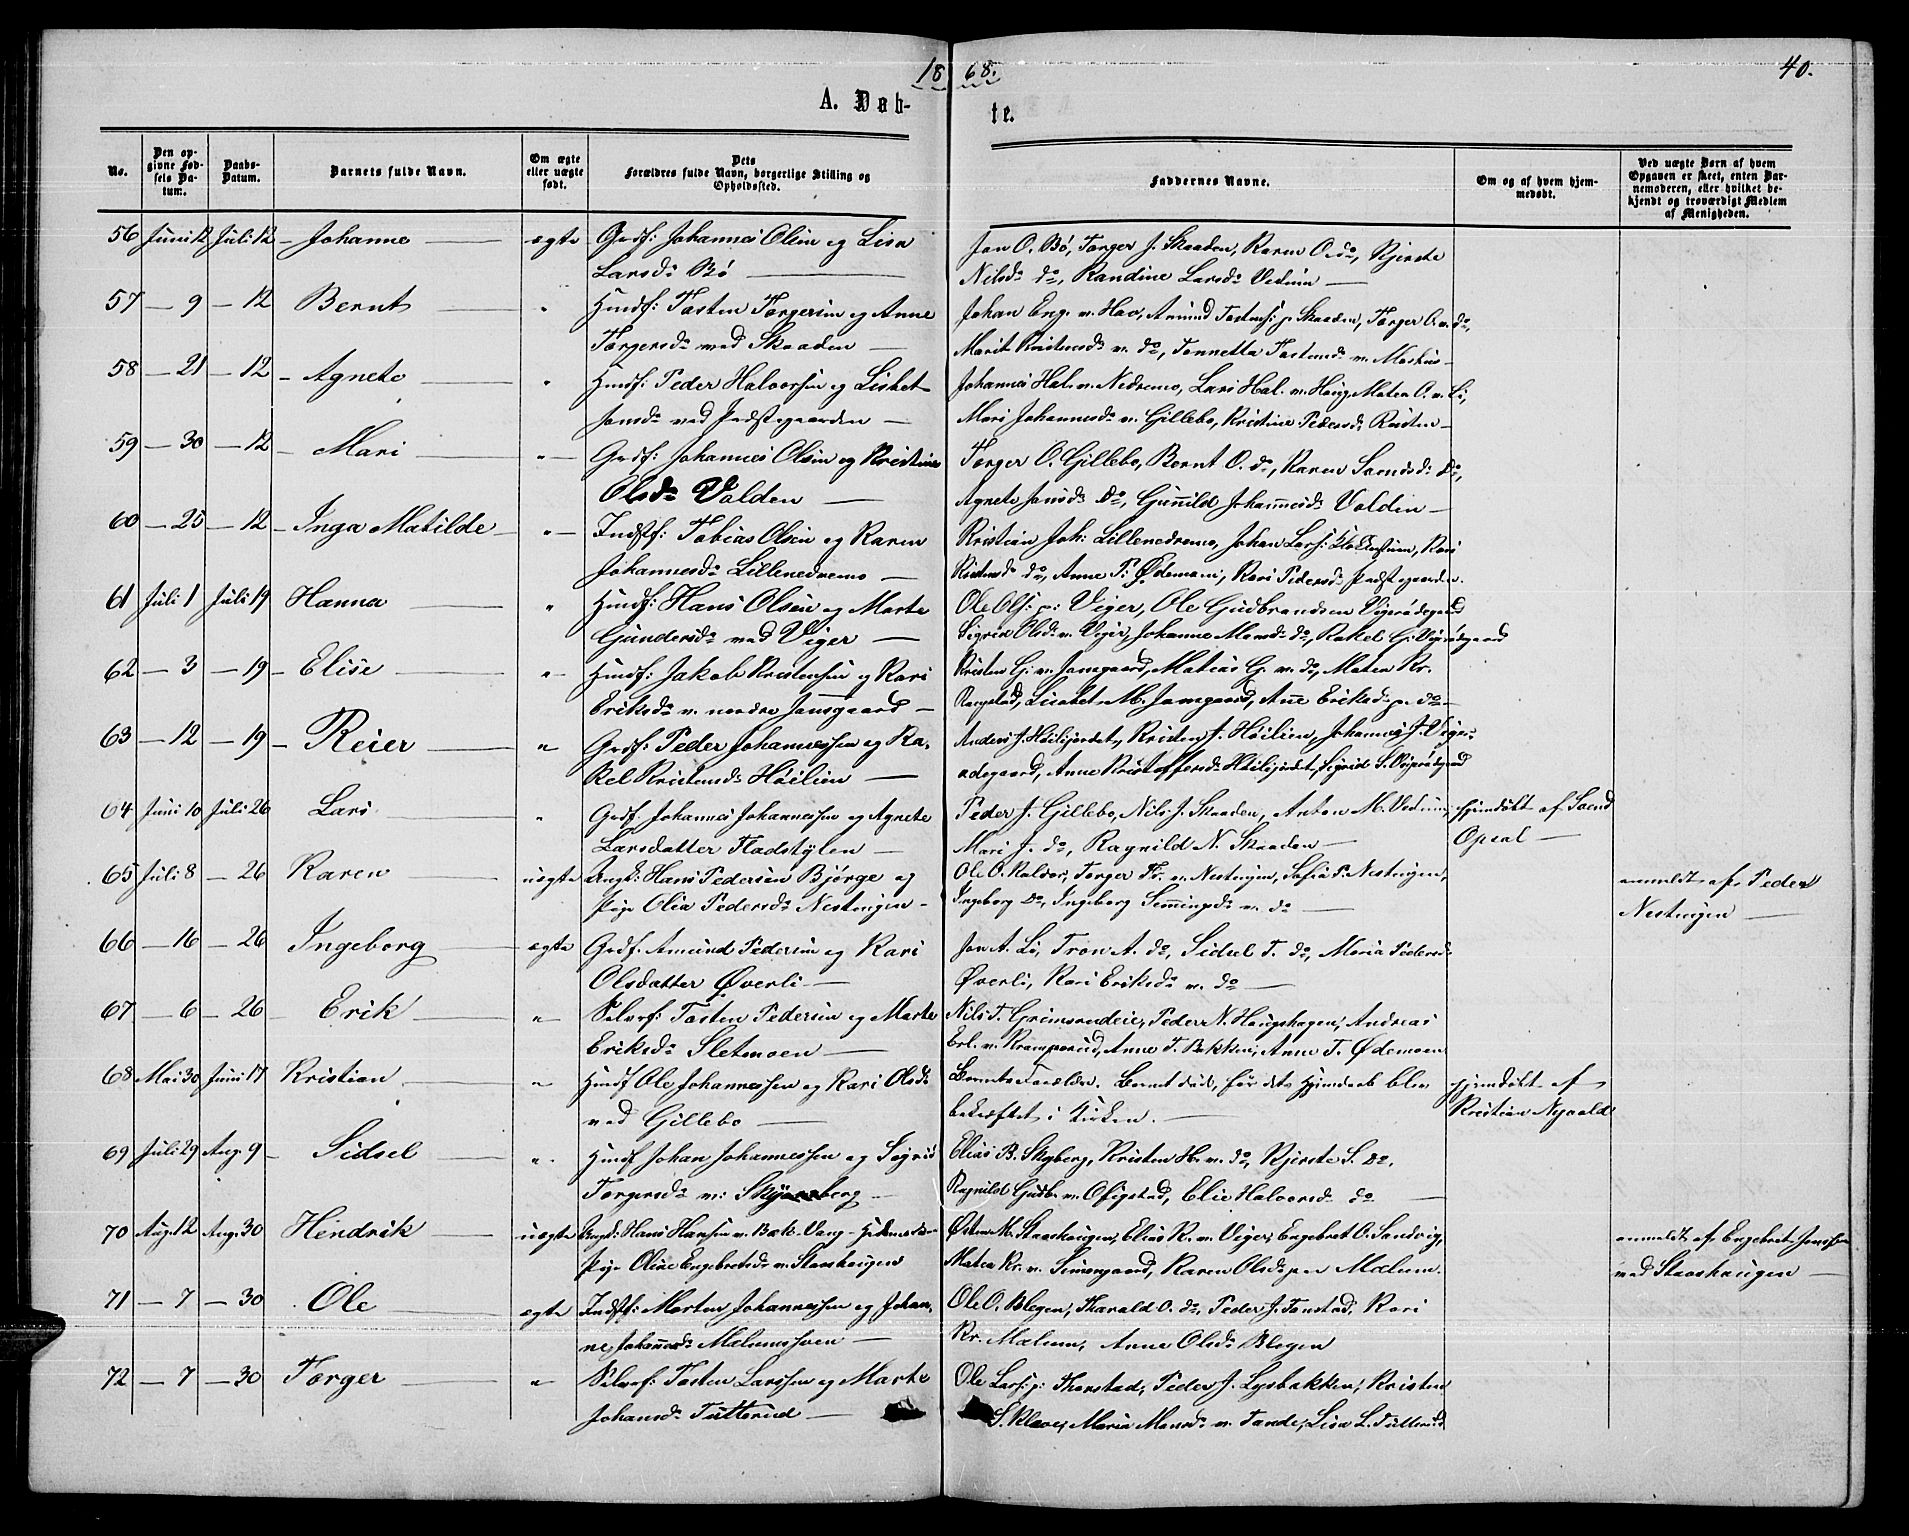 18 68.
40.
A. Døb-
te.
No.
Den op-
givne Fød-
sels Da-
tum.
Daabs-
Datum.
Barnets fulde Navn.
Om ægte
eller uægte
født.
Dets
Forældres fulde Navn, borgerlige Stilling og
Opholdssted.
Faddernes Navne.
Om og af hvem hjem-
medøbt.
Ved uægte Børn af hvem
Opgaven er skeet, enten Bar-
nemoderen, eller hvilket be-
kjendt og troværdigt Medlem
af Menigheden.
56 Juni 12 Juli 12 Johanne ægte Grdf: Johannes Olsen og Lisa
Larsdr Bø
Jon O. Bø, Torger J. Skaaden, Karen O. do, Kjerste
Nilsdr do, Randine Larsdr Vedum
57 9 12 Bernt " Husf: Tosten Torgersen og Anne
Torgersdr ved Skaaden
Johan Eng. v. Hov, Amund Tostens: p. Skaaden, Torger O. v. do,
Marit Kristensdr v. do, Tonnetta Tostensdr v.
58 21 12 Agnete " Husf: Peder Halvorsen og Lisbet
Jonsdr ved Præstegaarden
Johannes Hal. v. Nedremo, Lars Hal. v. Haug, Matea O. v. Li,
Mari Johannesdr v. Gillebo, Kristine Pedersdr Risten
59 30 12 Mari " Grdf: Johannes Olsen og Kristine
Olsdr Volden
Torger O. Gillebo, Bernt O. do, Karen Somdsdr do,
Agnete Jonsdr do, Gunild Johannesdr Volden
60 25 12 Inga Matilde " Indstf: Tobias Olsen og Karen
Johannesdr Lillenedremo
Kristian Joh: Lillenedremo, Johan Lars: Klokkerstuen, Kari
Kristensdr do, Anne P. Ødemoen, Kari Pedersdr Præstegaarden.
61 Juli 1 Juli 19 Hanna " Husf: Hans Olsen og Marte
Gundersdr ved Viger
Ole Ols: p: Viger, Ole Gudbrandsen Vigerødegaard
Sigrid Olsdr v. Viger, Johanne Monsdr do, Rakel G. Vigerødegaard
62 3 19 Elise " Husf: Jakob Kristensen og Kari
Eriksdr v. nordre Jonsgaard
Kristen G. v. Jonsgaard, Matias G. v. do, Matea Kr.
Rognstad, Lisabet M. Jonsgaard, Anne Eriksdr p. do
63 12 19 Reier " Grdf: Peder Johannessen og Ra-
kel Kristensdr Høilien
Anders J. Høiljordet, Kristen J. Høilien, Johannes J. Viger-
ødegaard, Anne Kristoffersdr Høiljordet, Sigrid S. Vigerødegaard
64 Juni 10 Juli 26 Lars " Grdf. Johannes Johannessen og Agnete
Larsdatter Fladstylen
Peder J. Gillebo, Nils J. Skaaden, Anton M. Vedum,
Mari J. do, Ragnild N. Skaaden
hjemdøbt af Soend
Opsal
65 Juli 8 26 Karen uægte Ungk: Hans Pedersen Bjørge og
Pige Olia Pedersdr Nestingen
Ole O. Kalder, Torger Th. v. Nestingen, Sofia P. Nestingen,
Ingeborg do, Ingeborg Semmingsdr v. do
anmeldt af Peder
Nestingen
66 16 26 Ingeborg ægte Grdf. Amund Pedersen og Kari
Olsdatter Øverli
Jon A. Li, Tron A. do, Sidsel T. do, Maria Pedersdr
Øverli, Kari Eriksdr v. do
67 6 26 Erik " Selvef: Tosten Pedersen og Marte
Eriksdr Sletmoen
Nils T. Grimsrudeie, Peder N. Haugshagen, Andreas
Erl. v. Kramperud, Anne T. Bakken, Anne T. Ødemoen
68 Mai 30 Juni 17 Kristian " Husf Ole Johannessen og Kari Olsdr
ved Gillebo
Barnets Forældre. Barnet døde, før dets Hjemdaab blev
bekræftet i Kirken.
hjemdøbt af
Kristian Nyvold
69 Juli 29 Aug. 9 Sidsel " Husf Johan Johannessen og Sigrid
Torgersdr v: Skyberg
Elias B. Skyberg, Kristen H. v. do, Kjerste S. do,
Ragnild Gudb. v. Ofigstad, Elie Halvorsdr do
70 Aug. 12 Aug. 30 Hendrik uægte Ungk: Hans Hansen v. Bæk. Vang Hedemarken
Pige Oline Engebretsdr v. Staashaugen
Østen M. Staashaugen, Elias R. v. Viger, Engebret O. Sandvig,
Matea Kr. v. Simengaard, Karen Olsdr p. Mælum.
anmeldt af Engebret Jonssen
ved Staashaugen
71 7 30 Ole ægte Indstf: Morten Johannessen og Johan-
ne Johannesdr Melumssveen
Ole O. Blegen, Harald O. do, Peder J. Tonstad, Kari
Kr. Mælum, Anne Olsdr Blegen
72 7 30 Torger " Selvef: Tosten Larssen og Marte
Johansdr Tutterud
Ole Lars: p: Thorstad, Peder J. Lysbakken, Kristen
S. Kleve, Maria Monsdr v. Tande, Lisa L. Tutterud